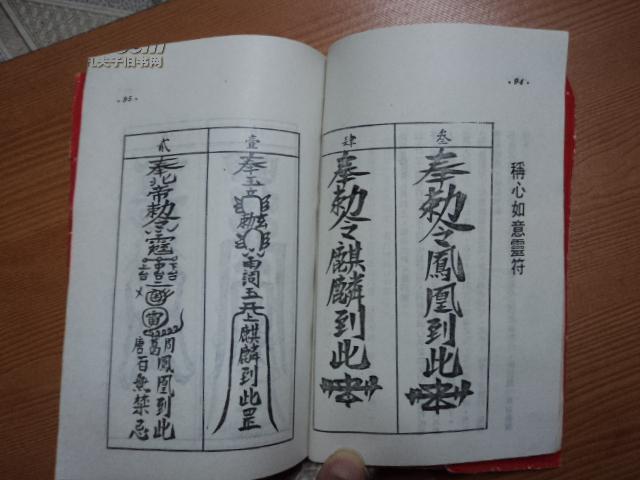 孔夫子旧书网
·94·
稱心如意靈符
叁
奉勅令鳳凰到此
肆
奉勅令麒麟到此
·95·
壹
奉玉
勅
麒麟到此罡
貳
奉北帝勅令
周
葛
唐
鳳凰到此
百無禁忌